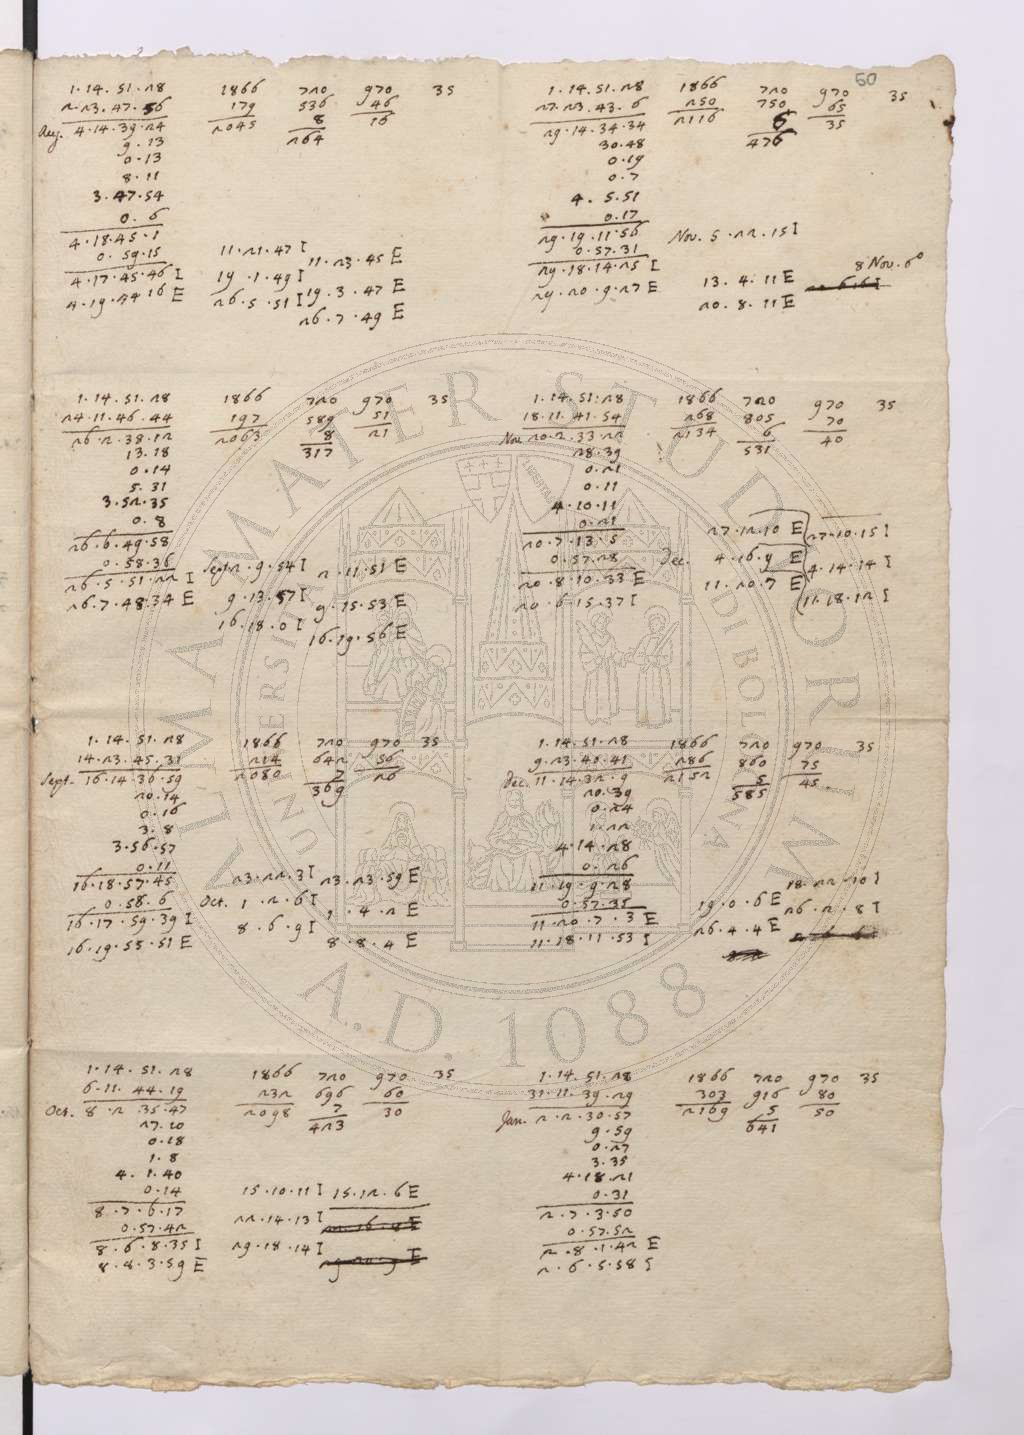 60
1.14.51.28 1866 720 970 35
2.23.47.56 179 536 46
Aug. 4.14.39.24 2045 8 16
9.13 264
0.13
8.11
3.47.54
0.6
4.18.45.1
0.59.15 11.21.47 I 11.23.45 E
4.17.45.46 I 19.1.49 I 19.3.47 E
4.19.44.16 E 26.5.51 I 26.7.49 E
1.14.51.28 1866 720 970 35
24.11.46.44 197 589 51
26.2.38.12 2063 8 21
13.18 317
0.14
5.31
3.52.35
0.8
26.6.49.58
0.58.36 Sept. 2.9.54 I 2.11.51 E
26.5.51.22 I 9.13.57 I 9.15.53 E
26.7.48.34 E 16.18.0 I 16.19.56 E
1.14.51.28 1866 720 970 35
14.23.45.31 214 642 56
Sept. 16.14.36.59 2080 7 26
20.14 369
0.16
3.8
3.56.57
0.11
16.18.57.45 23.22.3 I 23.23.59 E
0.58.6 Oct. 1.2.6 I 1.4.2 E
16.17.59.39 I 8.6.9 I 8.8.4 E
16.19.55.51 E
1.14.51.28 1866 720 970 35
6.11.44.19 232 696 60
Oct. 8.2.35.47 2098 7 30
27.20 423
0.18
1.8
4.1.40
0.14 15.10.11 I 15.12.6 E
8.7.6.17 22.14.13 I
0.57.42 29.18.14 I
8.6.8.35 I
8.8.3.59 E
1.14.51.28 1866 720 970 35
27.23.43.6 250 750 65
29.14.34.34 2116 6 35
30.48 476
0.19
0.7
4.5.51
0.17
29.19.11.56 Nov. 5.22.15 I
0.57.31
29.18.14.25 I 13.4.11 E 8 Nov. 6°
29.20.9.27 E 20.8.11 E
1.14.51.28 1866 720 970 35
18.11.41.54 268 805 70
Nov. 20.2.33.22 2134 6 40
28.39 531
0.21
0.11
4.10.11
0.21 27.12.10 E 27.10.15 I
20.7.13.5 Dec. 4.16.9 E 4.14.14 I
0.57.28 11.20.7 E 11.18.12 I
20.8.10.33 E
20.6.15.37 I
1.14.51.28 1866 720 970 35
9.23.40.41 286 860 75
Dec. 11.14.32.9 2152 5 45
20.39 585
0.24
1.22
4.14.28
0.26
11.19.9.28 18.22.10 I
0.57.35 19.0.6 E 26.2.8 I
11.20.7.3 E 26.4.4 E
11.18.11.53 I
1.14.51.28 1866 720 970 35
31.11.39.29 303 916 80
Jan. 2.2.30.57 2169 5 50
9.59 641
0.27
3.35
4.18.21
0.31
2.7.3.50
0.57.52
2.8.1.42 E
2.6.5.58 I
ALMA MATER STUDIORUM
UNIVERSITÀ DI BOLOGNA
A.D. 1088